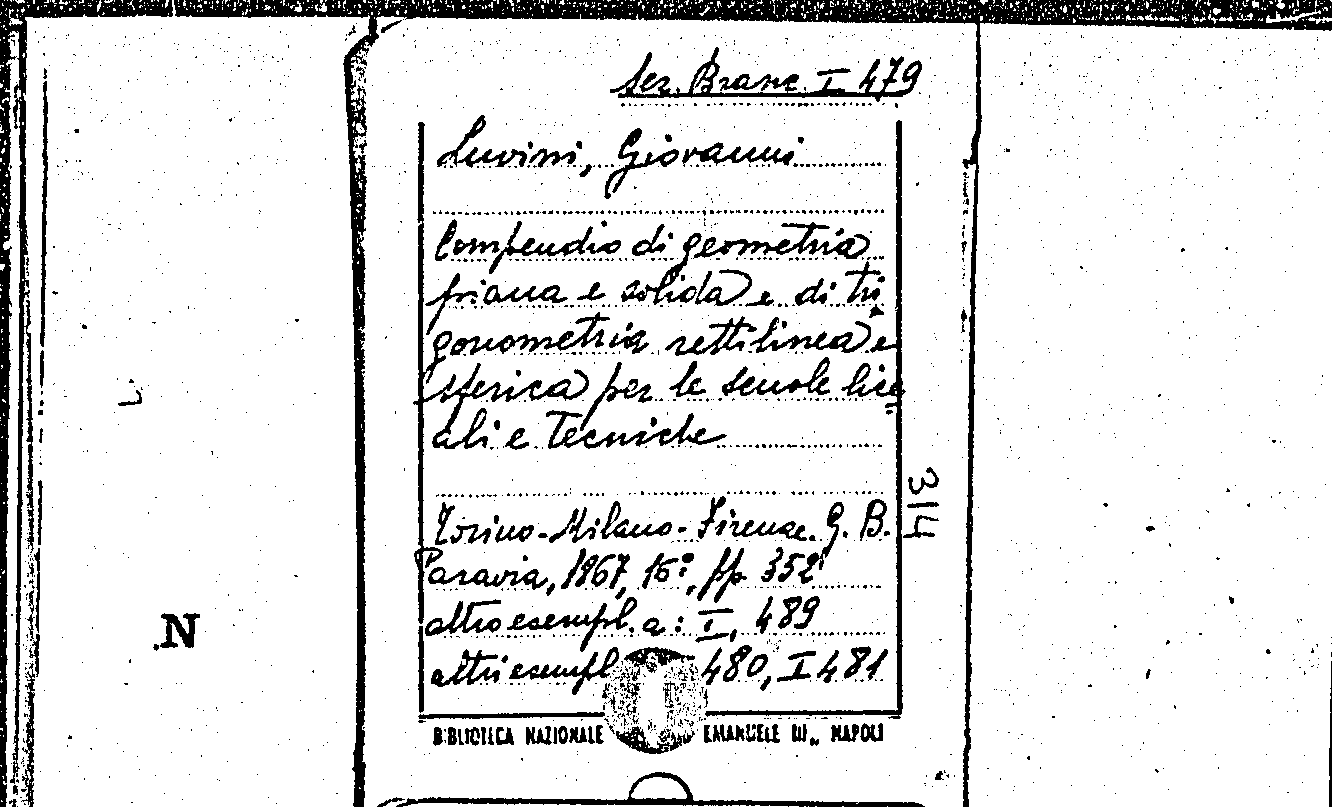 Sez. Branc. I 479
Luvini, Giovanni
Compendio di geometria
piana e solida e di tri
gonometria rettilinea e
sferica per le scuole lice
ali e tecniche
314
Torino-Milano-Firenze. G. B.
Paravia, 1867, 16º, pp 352
altro esempl. a: I, 489
altri esempl 480, I 481
BIBLIOTECA NAZIONALE EMANUELE III„ NAPOLI
.N